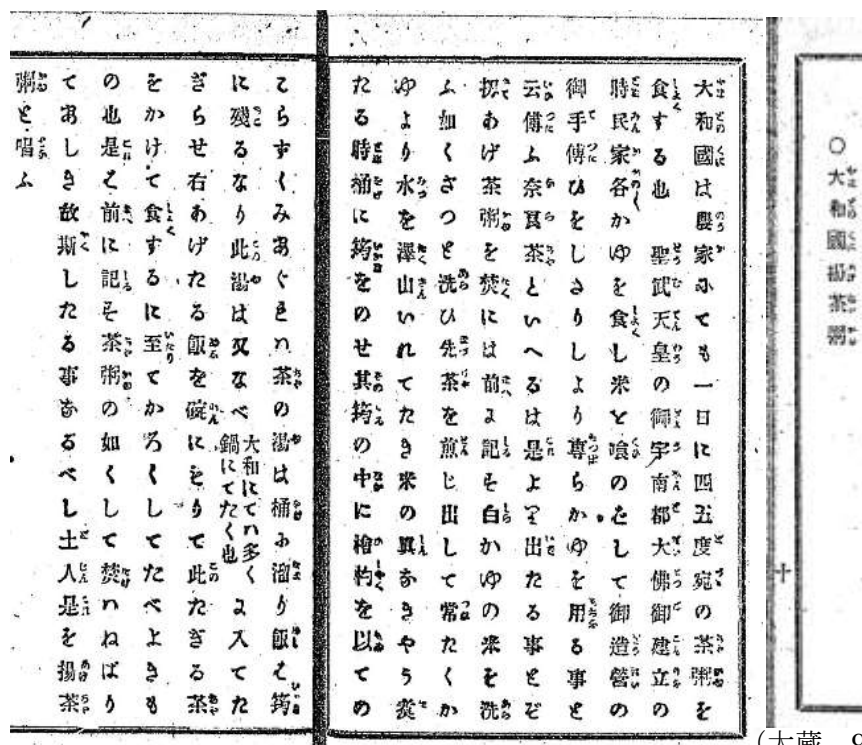 ○大和國揚茶粥
大和國は農家にても一日に四五度宛の茶粥を
食する也　聖武天皇の御宇南都大佛御建立の
時民家各かゆを食し米を喰のをして御造營の
御手傳ひをしさりしより專らかゆを用る事と
云傳ふ奈良茶といへるは是より出たる事とぞ
扨あげ茶粥を焚には前に記そ白かゆの米を洗
ふ如くさつと洗ひ先茶を煎じ出して常たくか
ゆより水を澤山いれてたき米の眞なきやう煑
たる時桶に筲をのせ其筲の中に檜杓を以てめ
こらずくみあぐれハ茶の湯は桶に溜り飯は筲
に殘るなり此湯は又なべ大和にてハ多く鍋にてたく也に入てた
ぎらせ右あげたる飯を碗にとりて此たぎる茶
をかけて食するに至てかろくしてたべよきも
の也是を前に記そ茶粥の如くして焚ハねばり
てあしき故斯したる事なるべし土人是を揚茶
粥と唱ふ
(大蔵